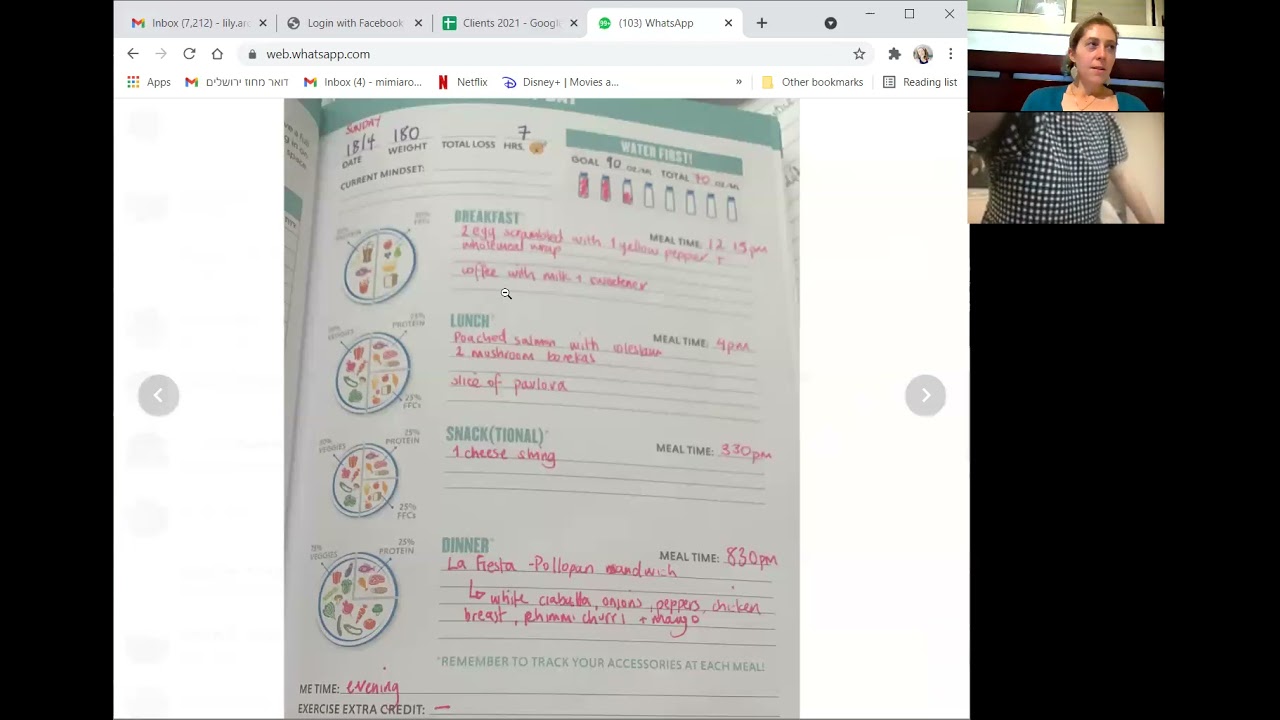 Inbox (7,212) - lily.arc
Login with Facebook
Clients 2021 - Google
99+
(103) WhatsApp
web.whatsapp.com
Apps
דואר מחוז ירושלים
Inbox (4) - mimsro...
Netflix
Disney+ | Movies a...
»
Other bookmarks
Reading list
SUNDAY
18/4 180 7
DATE WEIGHT TOTAL LOSS HRS.
CURRENT MINDSET:
WATER FIRST!
GOAL 90 OZ/ML TOTAL 70 OZ/ML
BREAKFAST*
MEAL TIME: 12 15pm
2 egg scrambled with 1 yellow pepper +
wholemeal wrap
coffee with milk + sweetener
LUNCH*
25% PROTEIN
25% FFCs
MEAL TIME: 4pm
Poached salmon with coleslaw
2 mushroom borekas
slice of pavlova
SNACK(TIONAL)*
50% VEGGIES
25% PROTEIN
25% FFCs
MEAL TIME: 330pm
1 cheese string
DINNER*
75% VEGGIES
25% PROTEIN
MEAL TIME: 830pm
La Fiesta - Pollopan sandwich
white ciabatta, onions, peppers, chicken
breast, chimmi churri + mango
*REMEMBER TO TRACK YOUR ACCESSORIES AT EACH MEAL!
ME TIME: evening
EXERCISE EXTRA CREDIT: —